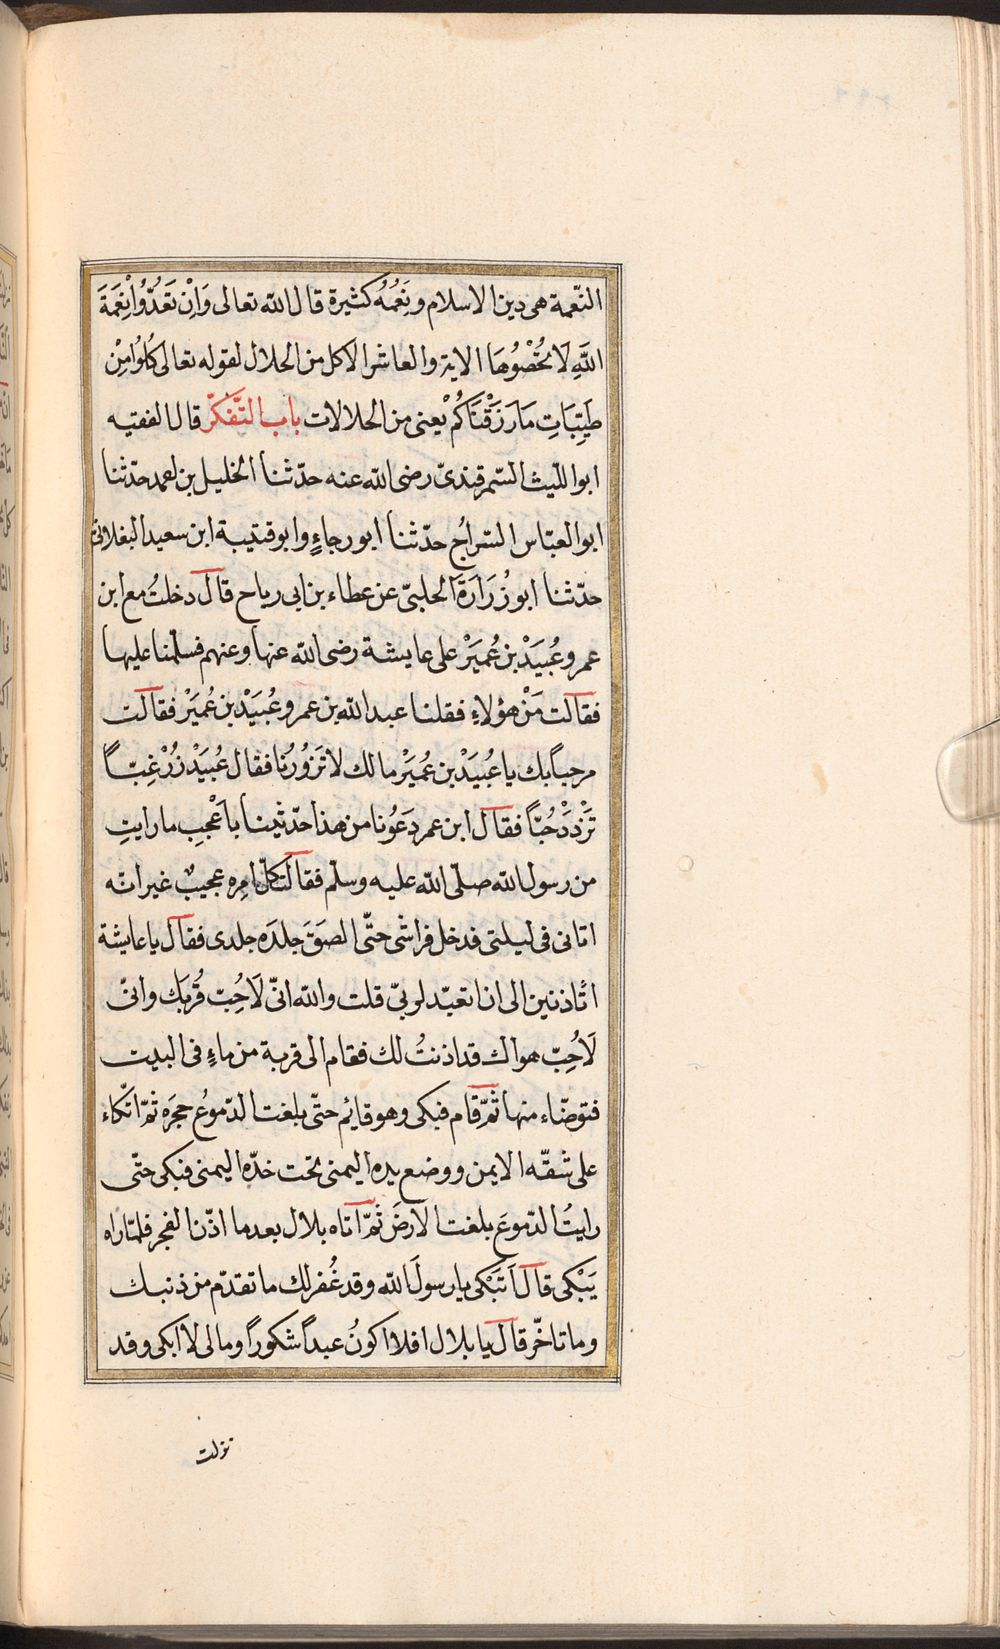 النّعمة هى دين الاسلام ونِعَمُهُ كثيرة قال الله تعالى وَاِنْ تَعُدُّوُا نِعْمَةَ
اللّٰهِ لَا تُحْصُوُهَا الاية والعاشر الاكل من الحلال لقوله تعالى كُلُوُا مِنْ
طَيِّبَاتِ مَا رَزَقْنَاكُمْ يعنى من الحلالات باب التّفكّر قال الفقيه
ابو اللّيث السّمرقندىّ رضى الله عنه حدّثنا الخليل بن احمد حدّثنا
ابو العبّاس السّراج حدّثنا ابو رجاءٍ وابو قتيبة ابن سعيد البغلانى
حدّثنا ابو زُرَارَةَ الحلبىّ عن عطاء بن ابى رياح قال دخلتُ مع ابن
عمر وعُبَيَدْ بن عُمَيَرْ على عايشة رضى الله عنها وعنهم فسلّمنا عليها
فقالت مَنْ هؤلاءِ فقلنا عبد الله بن عمر وعُبَيَدْ بن عُمَيَرْ فقالت
مرحباً بك يا عُبَيَدْ بن عُمَيَرْ مالك لا تَزُوُرُنا فقال عُبَيَدْ زُرْ غِبّاً
تَزْدَدْ حُبّاً فقال ابن عمر دَعُوُنا من هذا حدّثينا باَعْجَبِ ما رايتِ
من رسول الله صلّى الله عليه وسلّم فقالت كلّ امره عجيبٌ غير انّه
اتانى فى ليلتى فدخل فراشى حتّى الصَقَ جلدَه جلدى فقال يا عايشة
اتأذنين الى ان اتعبّد لربىّ قلت والله انىّ لَاُحِبّ قُربَك وانىّ
لَاُحِبّ هواك قد اذنتُ لك فقام الى قربة من ماءٍ فى البيت
فتوضّاء منها ثمّ قام فبكى وهو قائم حتّى بلغت الدّموعُ حجرَه ثمّ اتّكاء
على شقّه الايمن ووضع يده اليمنى تحت خدّه اليمنى فبكى حتّى
رايتُ الدّموعَ بلغت الارضَ ثمّ اتاه بلال بعد ما اذّن الفجر فلمّا راه
يَبْكى قال اَتَبْكى يا رسولَ الله وقد غُفر لك ما تقدّم من ذنبك
وما تاخّر قال يا بلال افلا اكونُ عبداً شكوراً ومالى لا ابكى وقد
نزلت